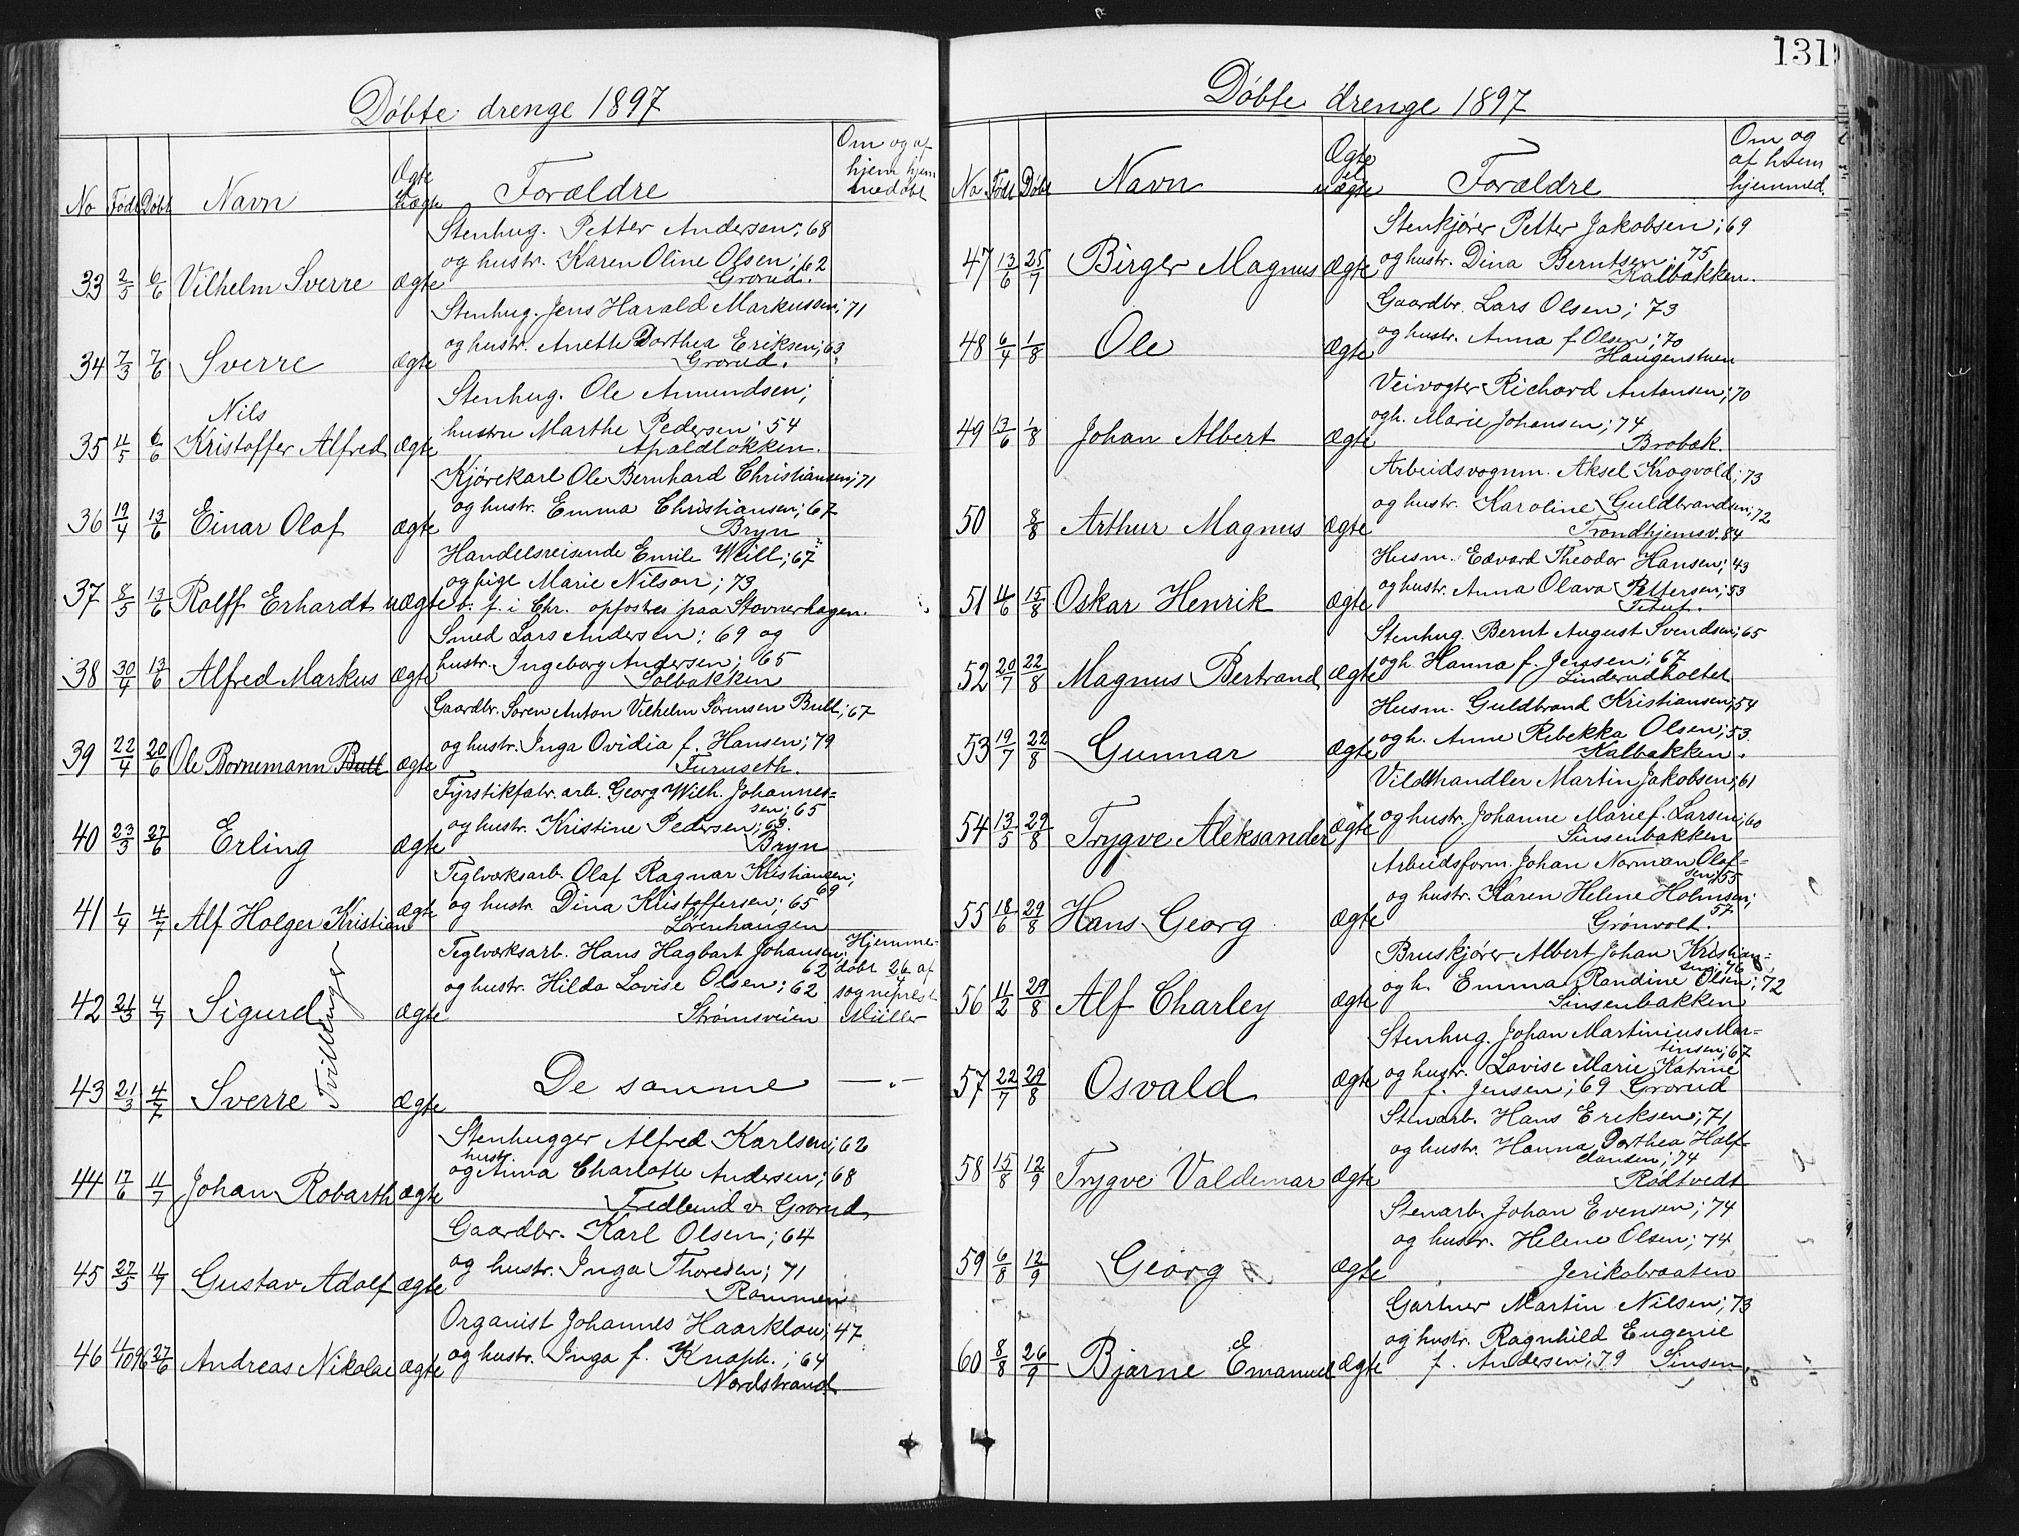 131
Døbte drenge 1897
No Født Døbt Navn Ægte el. uægte Forældre Om og af hjem hjem medøbt
Stenhug. Petter Andersen; 68
og hustr. Karen Oline Olsen; 62
33 2/5 6/6 Vilhelm Sverre Ægte Grorud.
Stenhug. Jens Harald Markussen; 71
og hustr. Anette Dorthea Eriksen; 63
34 7/3 7/6 Sverre Ægte Grorud.
Stenhug. Ole Amundsen;
Nils
hustru Marthe Pedersen; 54
35 4/5 6/6 Kristoffer Alfred Ægte Apaldløkken.
Kjørekarl Ole Bernhard Christiansen; 71
og hustr. Emma Christiansen; 67
36 19/4 13/6 Einar Olaf Ægte Bryn
Handelsreisende Emile Weill; 67
og pige Marie Nilson; 73
37 8/5 13/6 Rolff Erhardt uægte b. f. i Chr. opfostres paa Stovnerhagen.
Smed Lars Andersen; 69 og
hustr. Ingeborg Andersen; 65
38 30/4 13/6 Alfred Markus Ægte Solbakken
Gaardbr. Søren Anton Vilhelm Sørensen Bull; 67
og hustr. Inga Ovidia f. Hansen; 79
39 22/4 20/6 Ole Bornemann Bull Ægte Furuseth.
Fyrstikfabr. arb. Georg Wilh. Johannes=
sen; 65
og hustr. Kristine Pedersen; 63.
40 23/3 27/6 Erling Ægte Bryn
Teglværksarb. Olaf Ragnar Kristiansen;
69
og hustr. Dina Kristoffersen; 65
41 1/4 4/7 Alf Holger Kristian Ægte Lørenhaugen
Teglværksarb. Hans Hagbart Johansen; Hjemme-
62 døbt 26/4 af
og hustr. Hilda Lovise Olsen; 62 sogneprest
42 21/3 4/7 Sigurd Tvillinger Ægte Strømsveien Müller
43 21/3 4/7 Sverre Ægte De samme —„—
Stenhugger Alfred Karlsen; 62
hust.
og Anna Charlotte Andersen; 68
44 17/6 11/7 Johan Robarth Ægte Fredlund v. Grorud
Gaardbr. Karl Olsen; 64
og hustr. Inga Thoresen; 71
45 27/5 11/7 Gustav Adolf Ægte Rommen
Organist Johannes Haarklou; 47
og hustr. Inga f. Knoph.; 64
46 4/10 96 27/6 Andreas Nikolai Ægte Nordstrand
Døbte drenge 1897
No Født Døbt Navn Ægte el. uægte Forældre Om og af hvem hjemmed.
Stenkjører Petter Jakobsen; 69
og hustr. Dina Berntsen; 75
47 13/6 25/7 Birger Magnus Ægte Kalbakken.
Gaardbr. Lars Olsen; 73
og hustr. Anna f. Olsen; 70
48 6/4 1/8 Ole Ægte Haugenstuen
Veivogter Richard Antonsen; 70
og h. Marie Johansen; 74
49 17/6 1/8 Johan Albert Ægte Brobæk.
Arbeidsvognm. Aksel Krogvold; 73
og hustr. Karoline Guldbrandsen; 72
50 8/8 Arthur Magnus Ægte Trondhjemsv. 84
Husm. Edvard Theodor Hansen; 43
og hustr. Anna Olava Pettersen; 53
51 4/6 15/8 Oskar Henrik Ægte
Stenhug. Bernt August Svendsen; 65
og h. Hanna f. Jensen; 67
52 20/7 22/8 Magnus Bertrand Ægte Linderudholtet
Husm. Guldbrand Kristiansen; 54
og h. Anne Rebekka Olsen; 53
53 19/7 22/8 Gunnar Ægte Kalbakken.
Vildthandler Martin Jakobsen; 61
og hustr. Johanne Marie f. Larsen; 60
54 13/5 29/8 Trygve Aleksander Ægte Sinsenbakken
Arbeidsform. Johan Norman Olaf=
sen; 55
og hustr. Karen Helene Holmsen;
57
55 18/6 29/8 Hans Georg Ægte Grønvolt.
Bruskjører Albert Johan Kristian=
sen; 76
og h. Emma Randine Olsen; 72
56 11/2 29/8 Alf Charley Ægte Sinsenbakken
Stenhug. Johan Martinius Mar=
tinsen; 67
og hustr. Lovise Marie Katrine
57 22/7 29/8 Osvald Ægte f. Jensen; 69 Grorud
Stenarb. Hans Eriksen; 71
og hustr. Hanna Dorthea Half=
dansen; 74
58 15/8 12/9 Trygve Valdemar Ægte Rødtvedt
Stenarb. Johan Evensen; 74
og hustr. Helene Olsen; 74
59 6/8 12/9 Georg Ægte Jerikobraaten
Gartner Martin Nilsen; 73
og hustr. Ragnhild Eugenie
60 8/8 26/9 Bjarne Emanuel Ægte f. Andersen; 79 Sinsen.